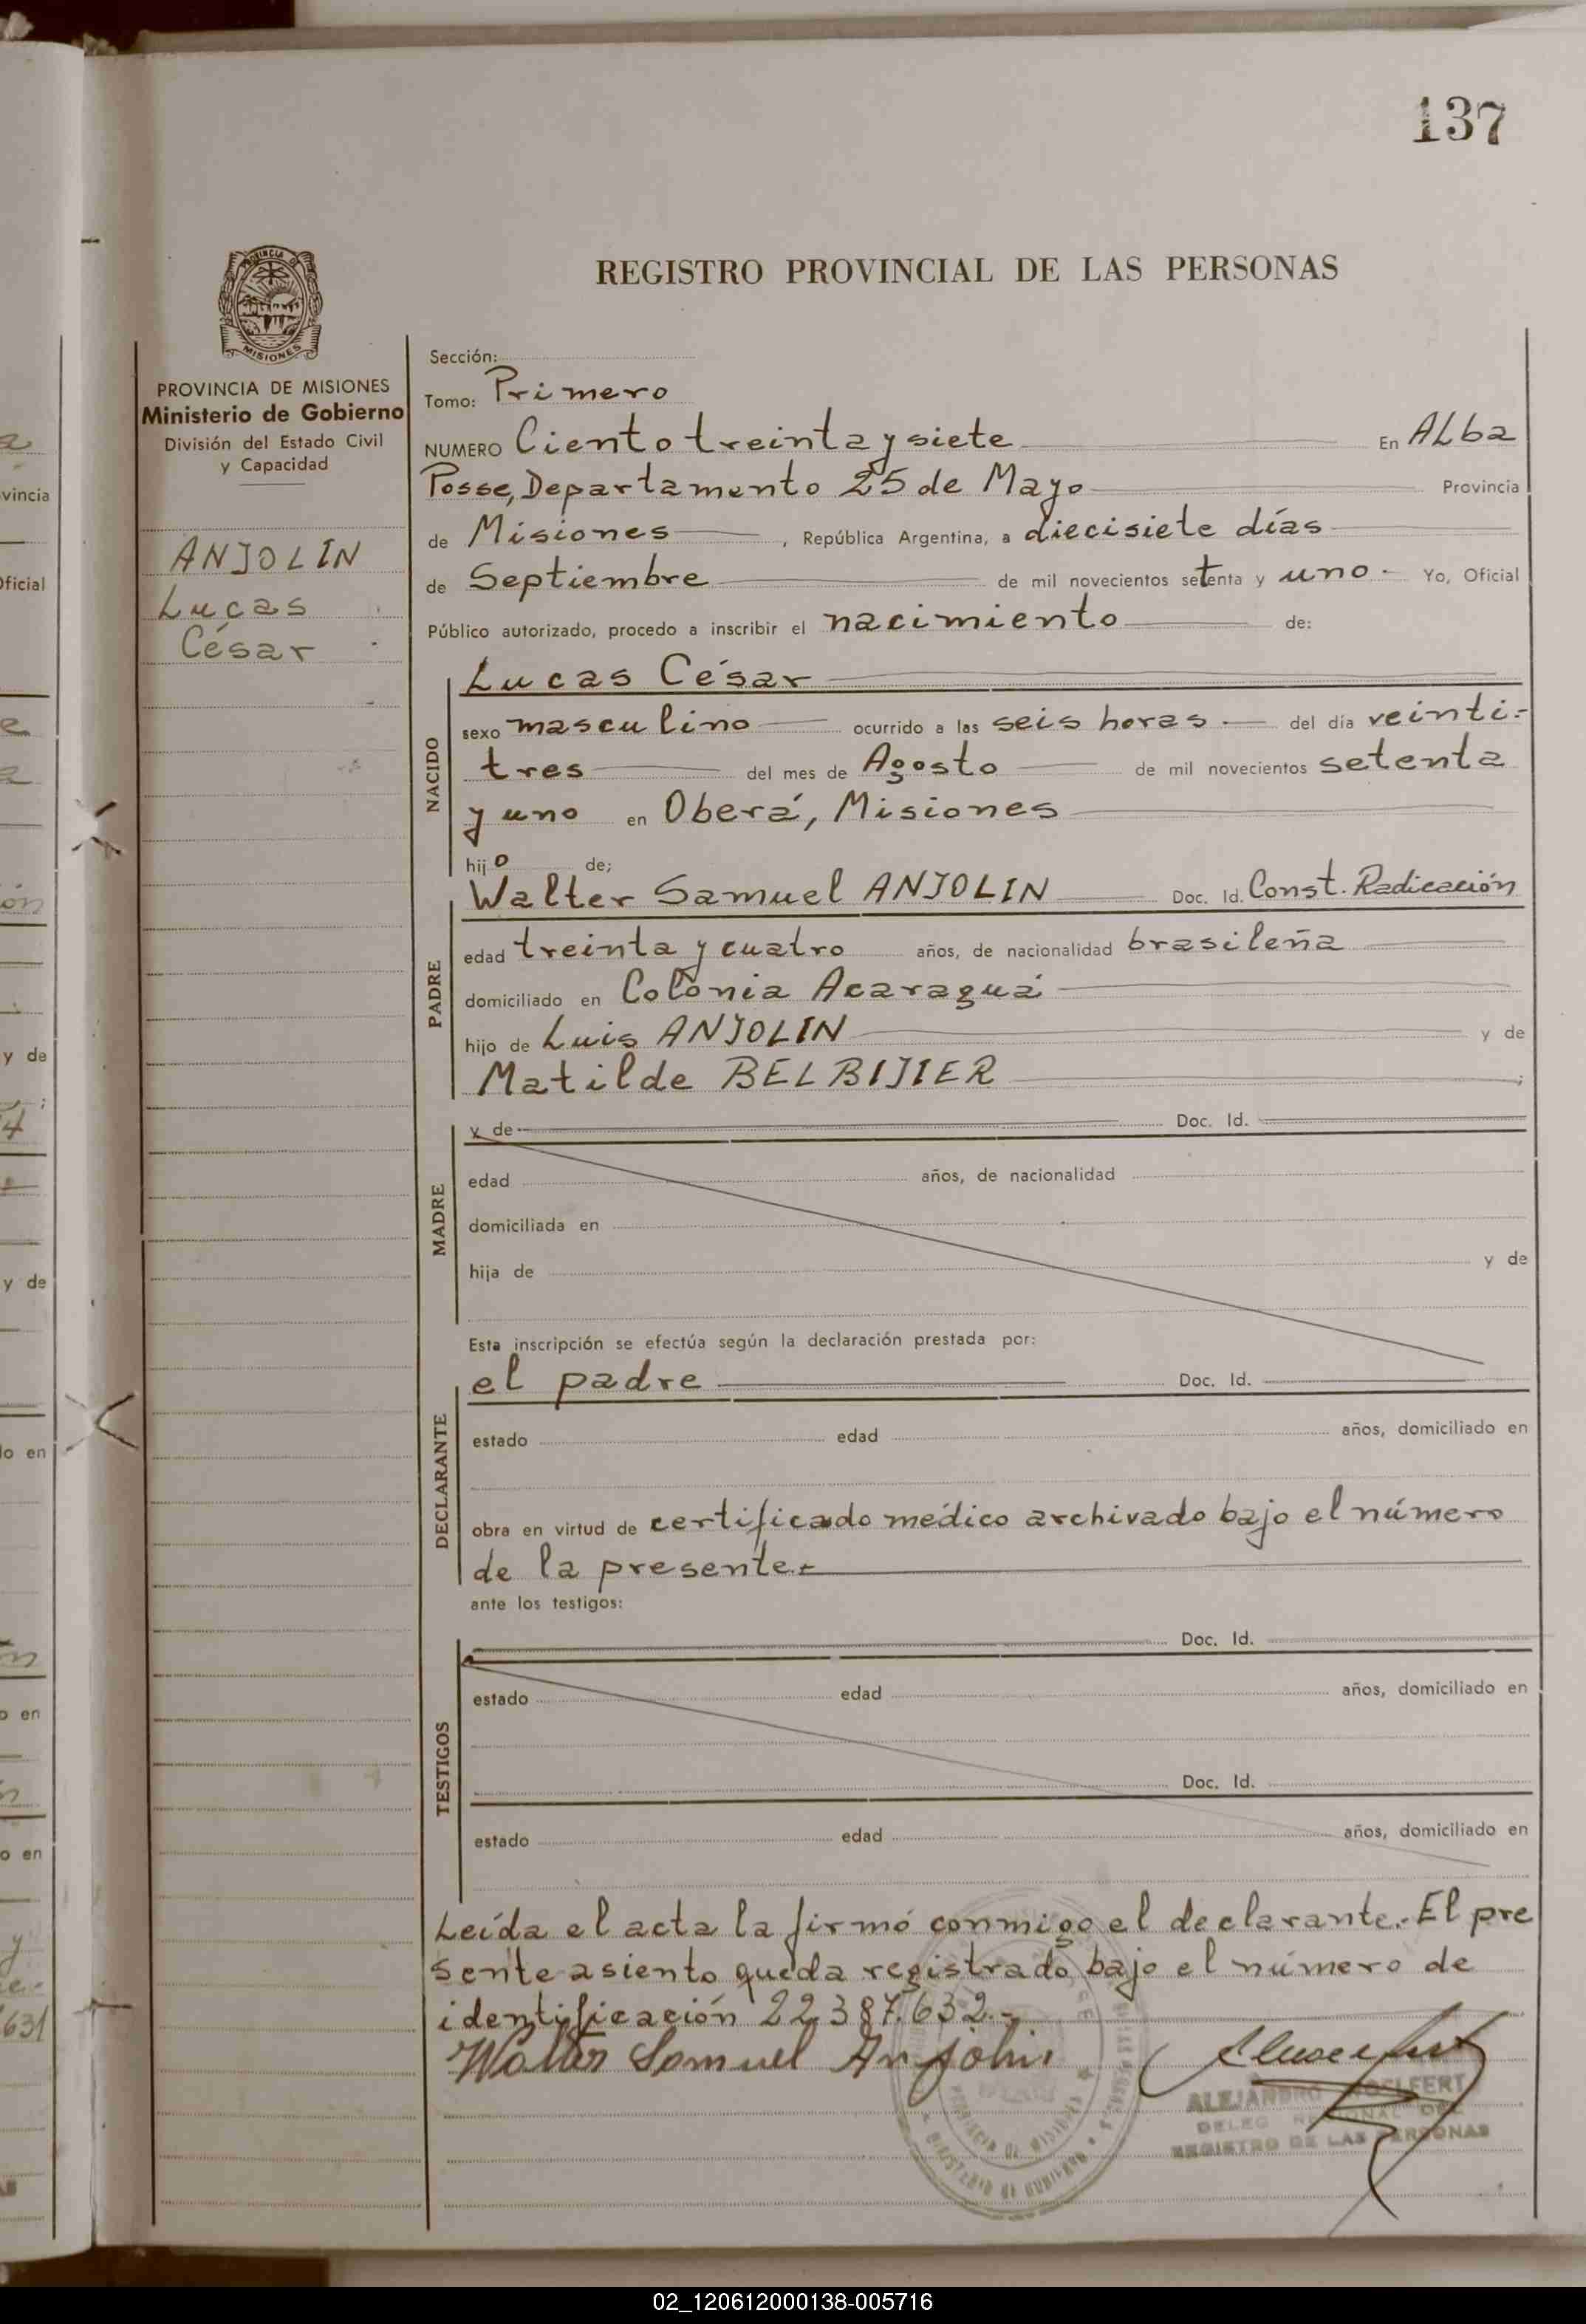 137
REGISTRO PROVINCIAL DE LAS PERSONAS
PROVINCIA DE MISIONES
MISIONES
PROVINCIA DE MISIONES
Ministerio de Gobierno
División del Estado Civil
y Capacidad
ANJOLIN
Lucas
César
Sección:
Tomo: Primero
NUMERO Ciento treinta y siete En ALba
Posse, Departamento 25 de Mayo Provincia
de Misiones , República Argentina, a diecisiete días
de Septiembre de mil novecientos setenta y uno.- Yo, Oficial
Público autorizado, procedo a inscribir el nacimiento de:
Lucas César
NACIDO
sexo masculino ocurrido a las seis horas del día veinti-
tres del mes de Agosto de mil novecientos setenta
y uno en Oberá, Misiones
hijo de;
Walter Samuel ANJOLIN Doc. Id. Const. Radicación
PADRE
edad treinta y cuatro años, de nacionalidad brasileña
domiciliado en Colonia Acaraguá
hijo de Luis ANJOLIN y de
Matilde BELBIJIER ;
y de Doc. Id.
MADRE
edad años, de nacionalidad
domiciliada en
hija de y de
Esta inscripción se efectúa según la declaración prestada por:
el padre Doc. Id.
DECLARANTE
estado edad años, domiciliado en
obra en virtud de certificado médico archivado bajo el número
de la presente.-
ante los testigos:
Doc. Id.
TESTIGOS
estado edad años, domiciliado en
Doc. Id.
estado edad años, domiciliado en
Leída el acta la firmó conmigo el declarante.- El pre
sente asiento queda registrado bajo el número de
identificación 22.387.632.-
Walter Samuel Anjolin
ALEJANDRO
DELEG REGIONAL DEL
REGISTRO DE LAS PERSONAS
vincia
Oficial
y de
y de
do en
o en
o en
631
02_120612000138-005716